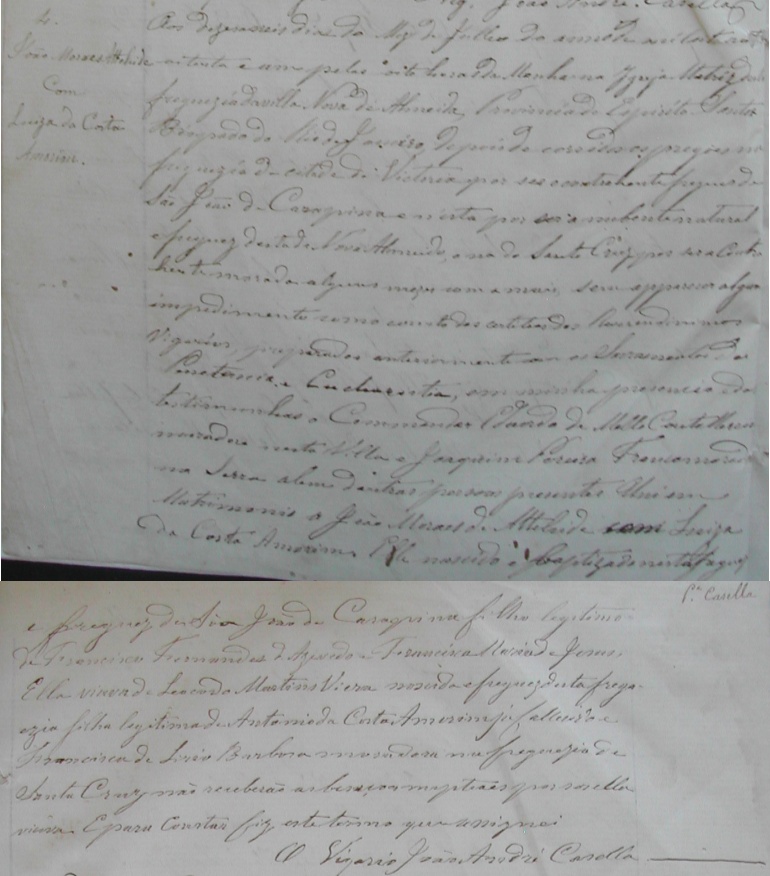 Vig. João André Casella
4.
João Moraes Attehide
Com
Luiza da Costa
Amorim.
Aos dezesseis dias do Mez de Julho do anno de mil oito centos
oitenta e um pelas oito horas da Manha na Igreja Matriz
freguezia da villa Nova de Almeida, Provincia do Espirito Santo
Bispado do Rio de Janeiro, depois de corridos os pregões na
freguezia da cidade de Victoria por ser o contrahente freguez de
São João de Carapina e nesta por ser o nubente natural
e freguez desta de Nova Almeida, e na de Santa Cruz por ser a Contra
hente moradora alguns mezes com a mais, sem apparecer algum
impedimento como consta das certidões dos Reverendissimos
Vigarios, preparados anteriormente com os Sacramentos da
Penitencia, e Eucharistia, em minha presença e das
testimunhas o Commendador Eduardo de Mello Coutto
moradores nesta Villa e Joaquim Pereira Franco morador
na Serra alem d'outras pessoas presentes Uni em
Matrimonio a João Moraes de Attehide com Luiza
da Costa Amorim. Elle nascido e baptizado nesta freguez
Pe. Casella
e freguez de São João de Carapina filho legitimo
de Francisco Fernandes d'Azevedo e Francisca Maria de Jesus,
Ella viuva de Leocardo Martins Vieira nascida e freguez desta fregue-
ezia filha legitima de Antonio da Costa Amorim já fallecido e
Francisca de Barbosa moradora na freguezia de
Santa Cruz não receberão as bençoes nupciaes por ser ella
viuva. E para constar fiz este termo que assignei
O Vigario João André Casella